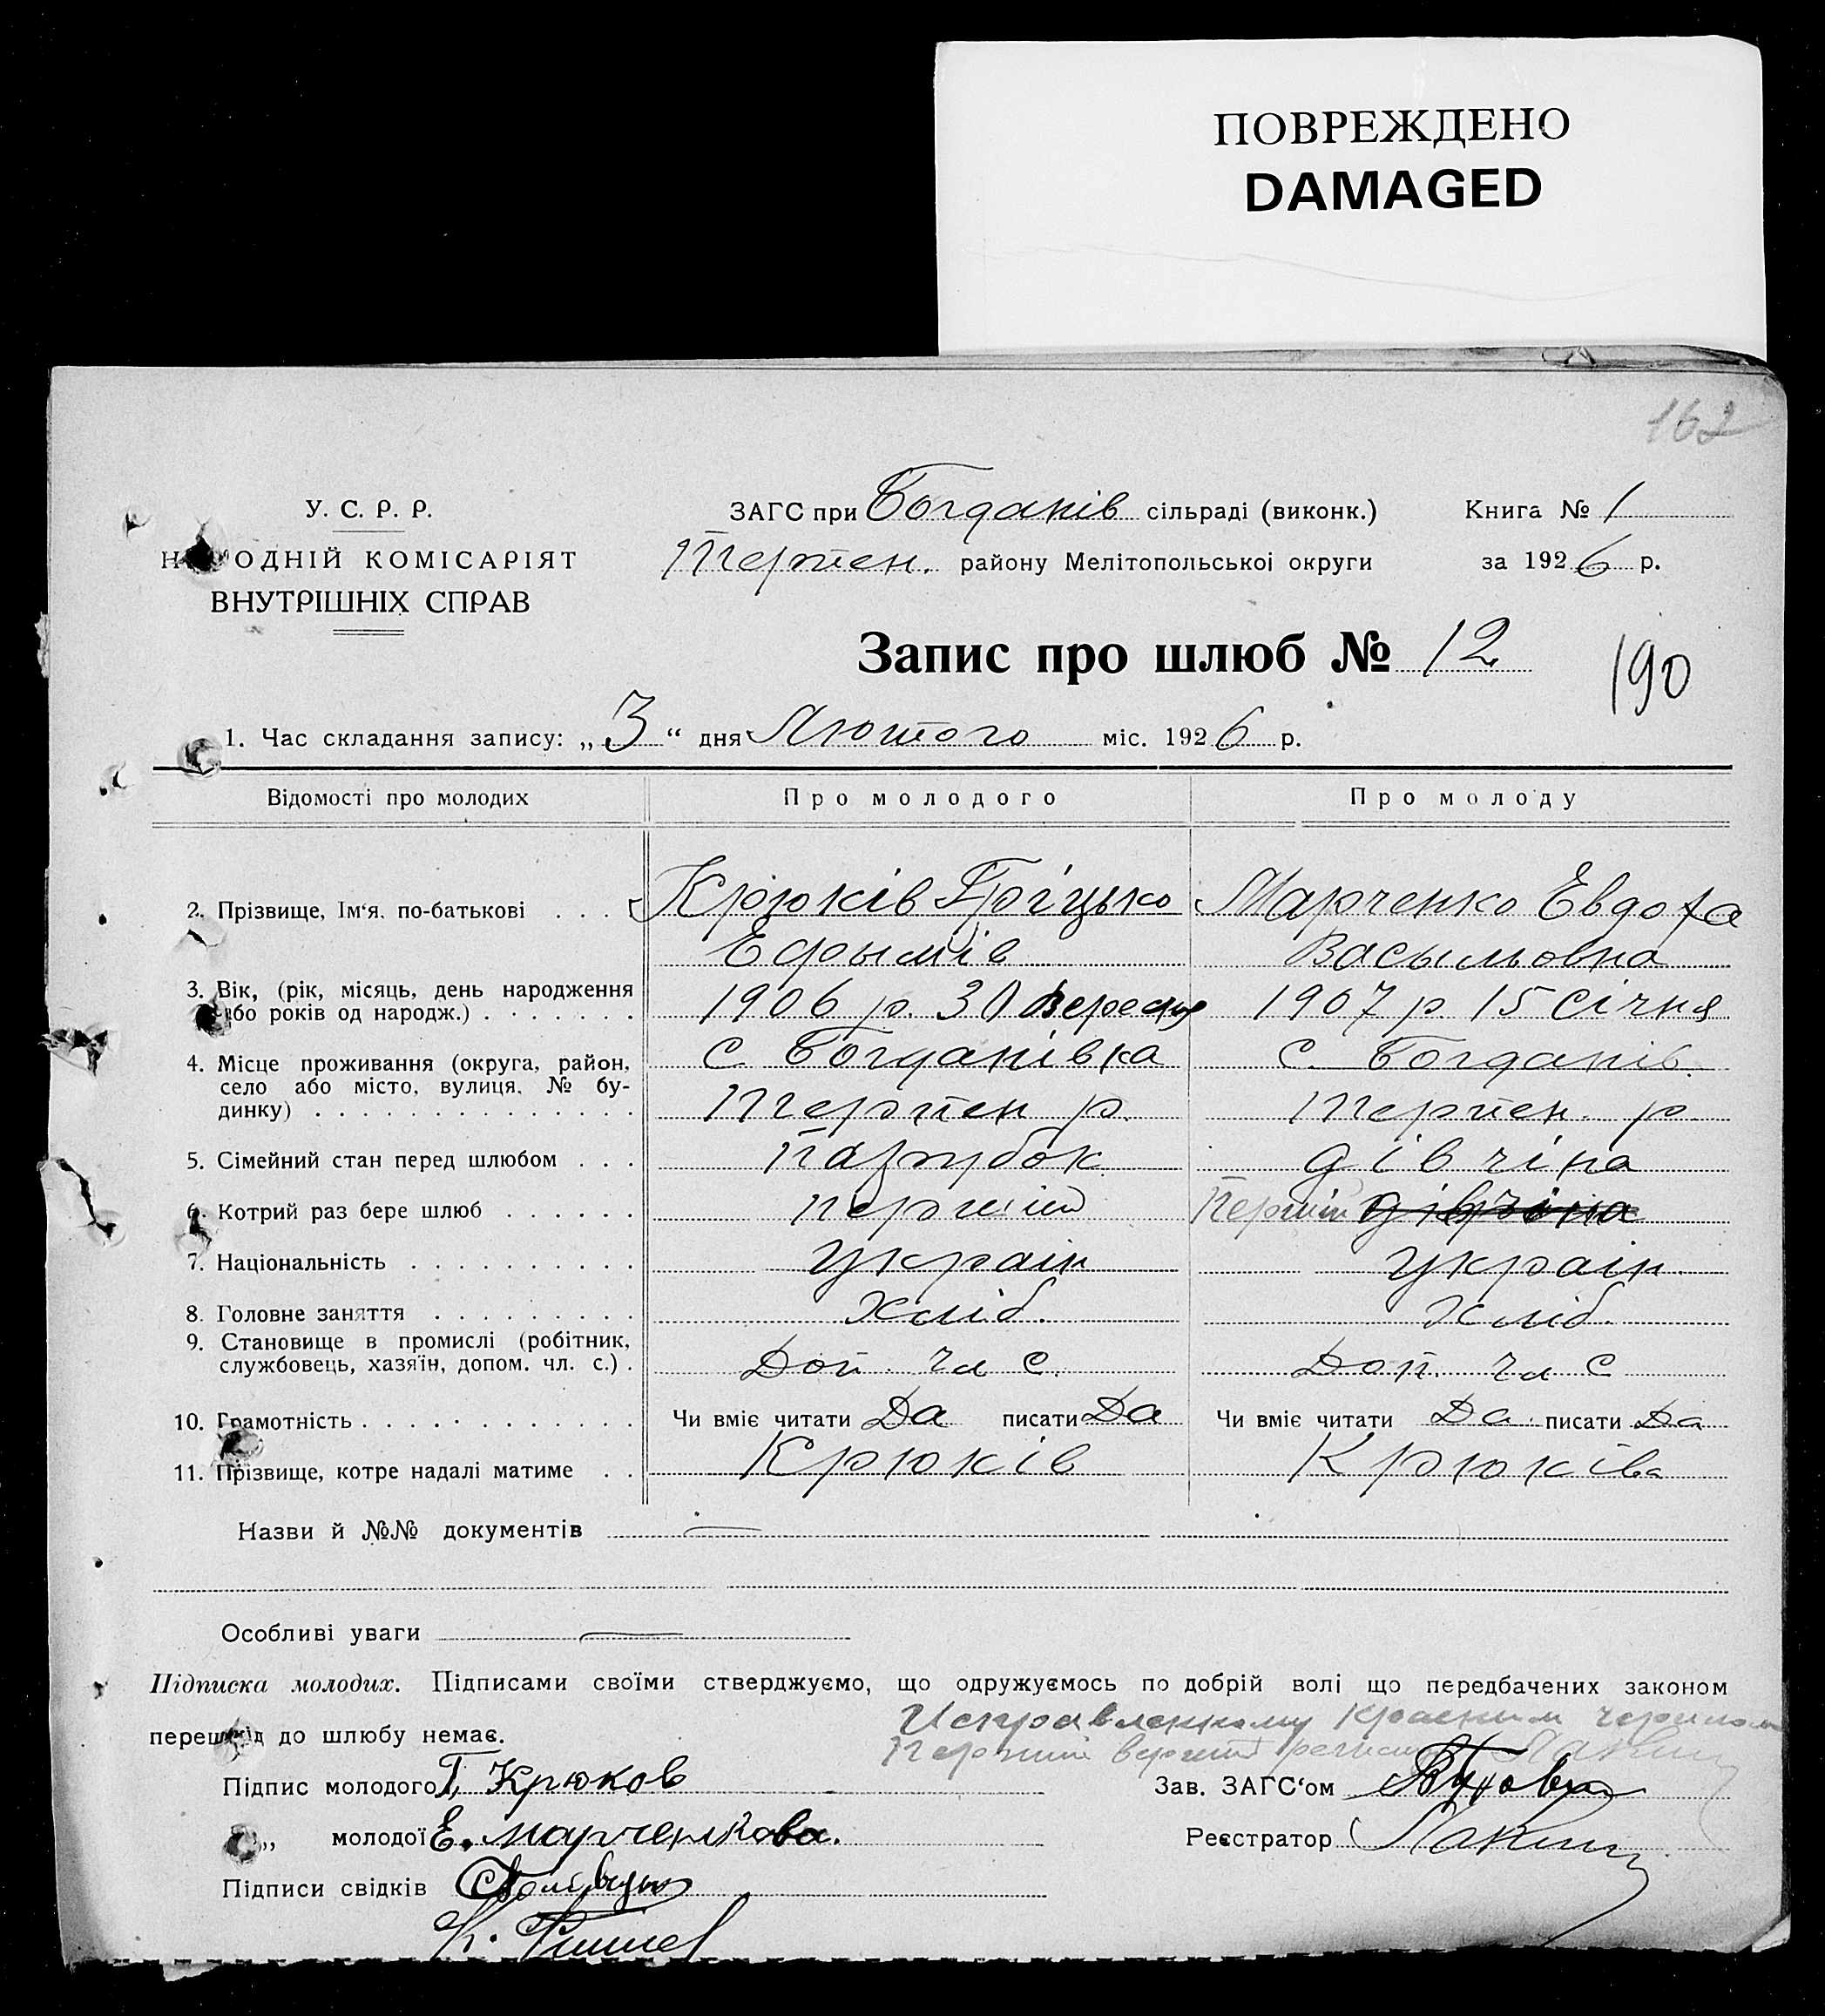 ПОВРЕЖДЕНО
DAMAGED
162
У. С. Р. Р.
НАРОДНІЙ КОМІСАРІЯТ
ВНУТРІШНІХ СПРАВ
ЗАГС при Богданів сільраді (виконк.) Книга № 1
Терпен. району Мелітопольської округи за 1926 р.
Запис про шлюб № 12
190
1. Час складання запису: „3“ дня Лютого міс. 1926 р.
Відомості про молодих Про молодого Про молоду
2. Прізвище, Ім‘я, по-батькові . . . Крюків Гріцько Марченко Евдоха
Ефрымів Васыльовна
3. Вік, (рік, місяць, день народження
або років од народж.) . . . . . . . 1906 р. 30 вересня 1907 р 15 січня
4. Місце проживання (округа, район, с. Богданівка с. Богданів.
село або місто, вулиця, № бу-
динку) . . . . . . . . . . . . . . Терпен р. Терпен. р.
5. Сімейний стан перед шлюбом . . . Парубок дівчіна
6. Котрий раз бере шлюб . . . . . . першій Першій дівчіна
7. Національність . . . . . . . . . . україн україн.
8. Головне заняття . . . . . . . . . хліб. хліб.
9. Становище в промислі (робітник,
службовець, хазяїн, допом. чл. с.) . Доп. чл с. Доп. чл с
10. Грамотність . . . . . . . . . . . . Чи вміє читати Да писати Да Чи вміє читати Да писати Да
11. Прізвище, котре надалі матиме . . Крюків Крюківа
Назви й №№ документів —
Особливі уваги —
Підписка молодих. Підписами своїми стверджуємо, що одружуємось по добрій волі що передбачених законом
перешкід до шлюбу немає.
Исправленному Красним чернилом
Першій верить
Підпис молодого Г. Крюков Зав. ЗАГС‘ом
„ молодої Е. Марченкова. Реєстратор
Підписи свідків
К.